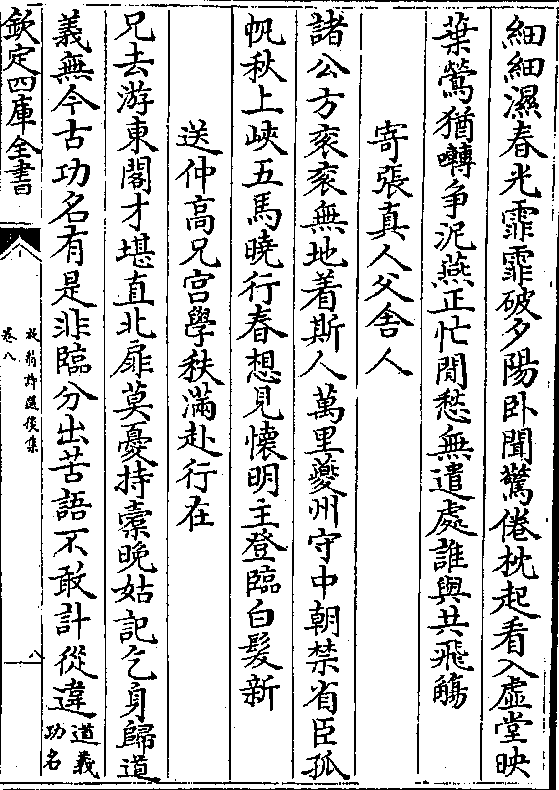 細細濕春光霏霏破夕陽卧聞驚倦枕起看入虛堂映
葉鶯猶囀爭泥燕正忙閒愁無遣處誰與共飛觴
寄張真人父舍人
諸公方衮衮無地着斯人萬里夔州守中朝禁省臣孤
帆秋上峽五馬曉行春想見懷明主登臨白髮新
送仲高兄宫學秩滿赴行在
兄去游東閣才堪直北扉莫憂持橐晚姑記乞身歸道
義無今古功名有是非臨分出苦語不敢計從違道義
功名
欽定四庫全書
放翁詩選後集
卷八
八